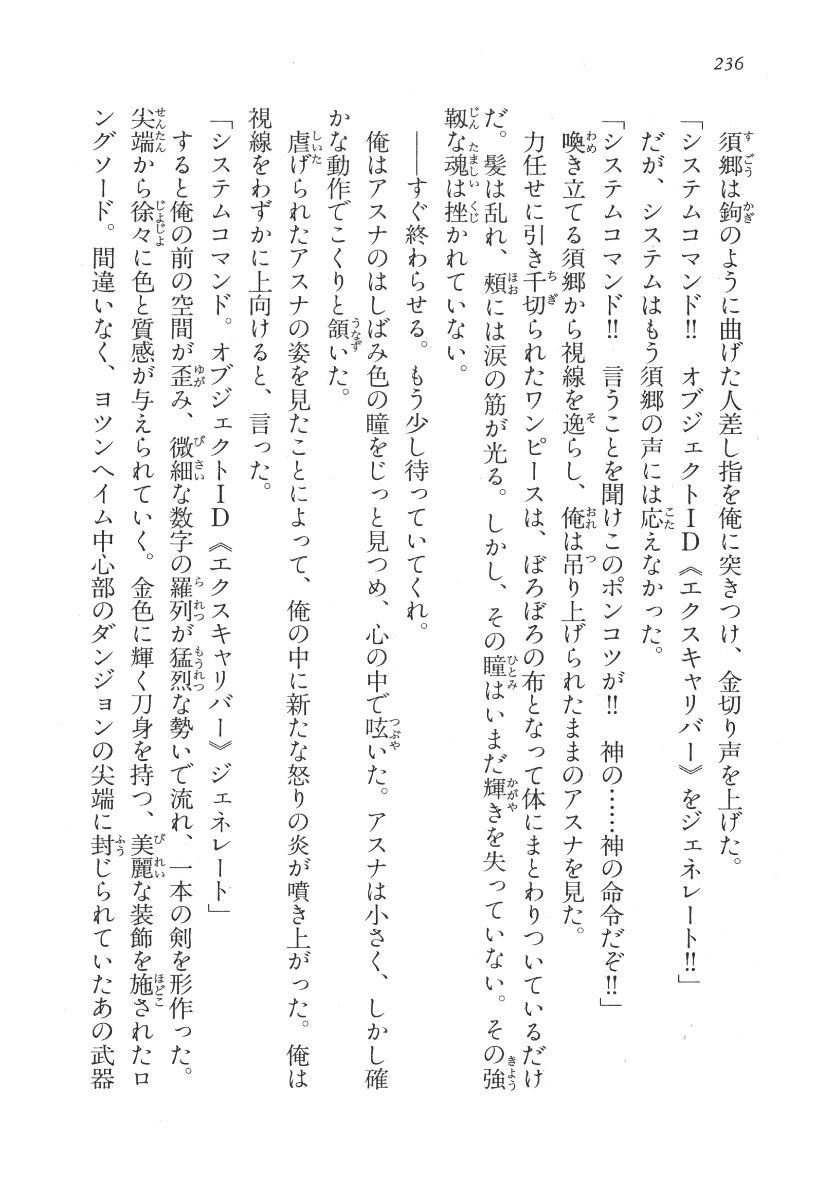 236
　須郷は鉤のように曲げた人差し指を俺に突きつけ、金切り声を上げた。
「システムコマンド!!　オブジェクトＩＤ《エクスキャリバー》をジェネレート!!」
　だが、システムはもう須郷の声には応えなかった。
「システムコマンド!!　言うことを聞けこのポンコツが!!　神の……神の命令だぞ!!」
　喚き立てる須郷から視線を逸らし、俺は吊り上げられたままのアスナを見た。
　力任せに引き千切られたワンピースは、ぼろぼろの布となって体にまとわりついているだけ
だ。髪は乱れ、頰には涙の筋が光る。しかし、その瞳はいまだ輝きを失っていない。その強
靱な魂は挫かれていない。
　――すぐ終わらせる。もう少し待っていてくれ。
　俺はアスナのはしばみ色の瞳をじっと見つめ、心の中で呟いた。アスナは小さく、しかし確
かな動作でこくりと頷いた。
　虐げられたアスナの姿を見たことによって、俺の中に新たな怒りの炎が噴き上がった。俺は
視線をわずかに上向けると、言った。
「システムコマンド。オブジェクトＩＤ《エクスキャリバー》ジェネレート」
　すると俺の前の空間が歪み、微細な数字の羅列が猛烈な勢いで流れ、一本の剣を形作った。
尖端から徐々に色と質感が与えられていく。金色に輝く刀身を持つ、美麗な装飾を施されたロ
ングソード。間違いなく、ヨツンヘイム中心部のダンジョンの尖端に封じられていたあの武器